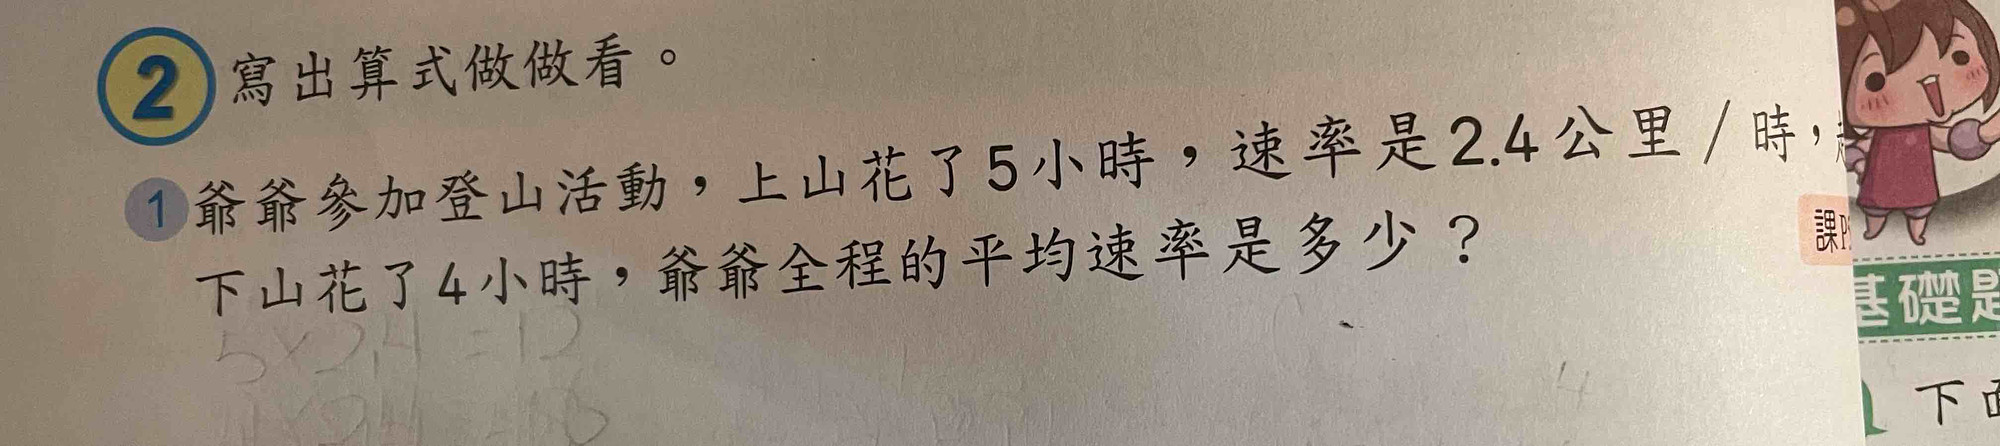 2 寫出算式做做看。
1 爺爺參加登山活動，上山花了5小時，速率是2.4公里／時，
下山花了4小時，爺爺全程的平均速率是多少？
5×2.4=12
課P
基礎
4
下